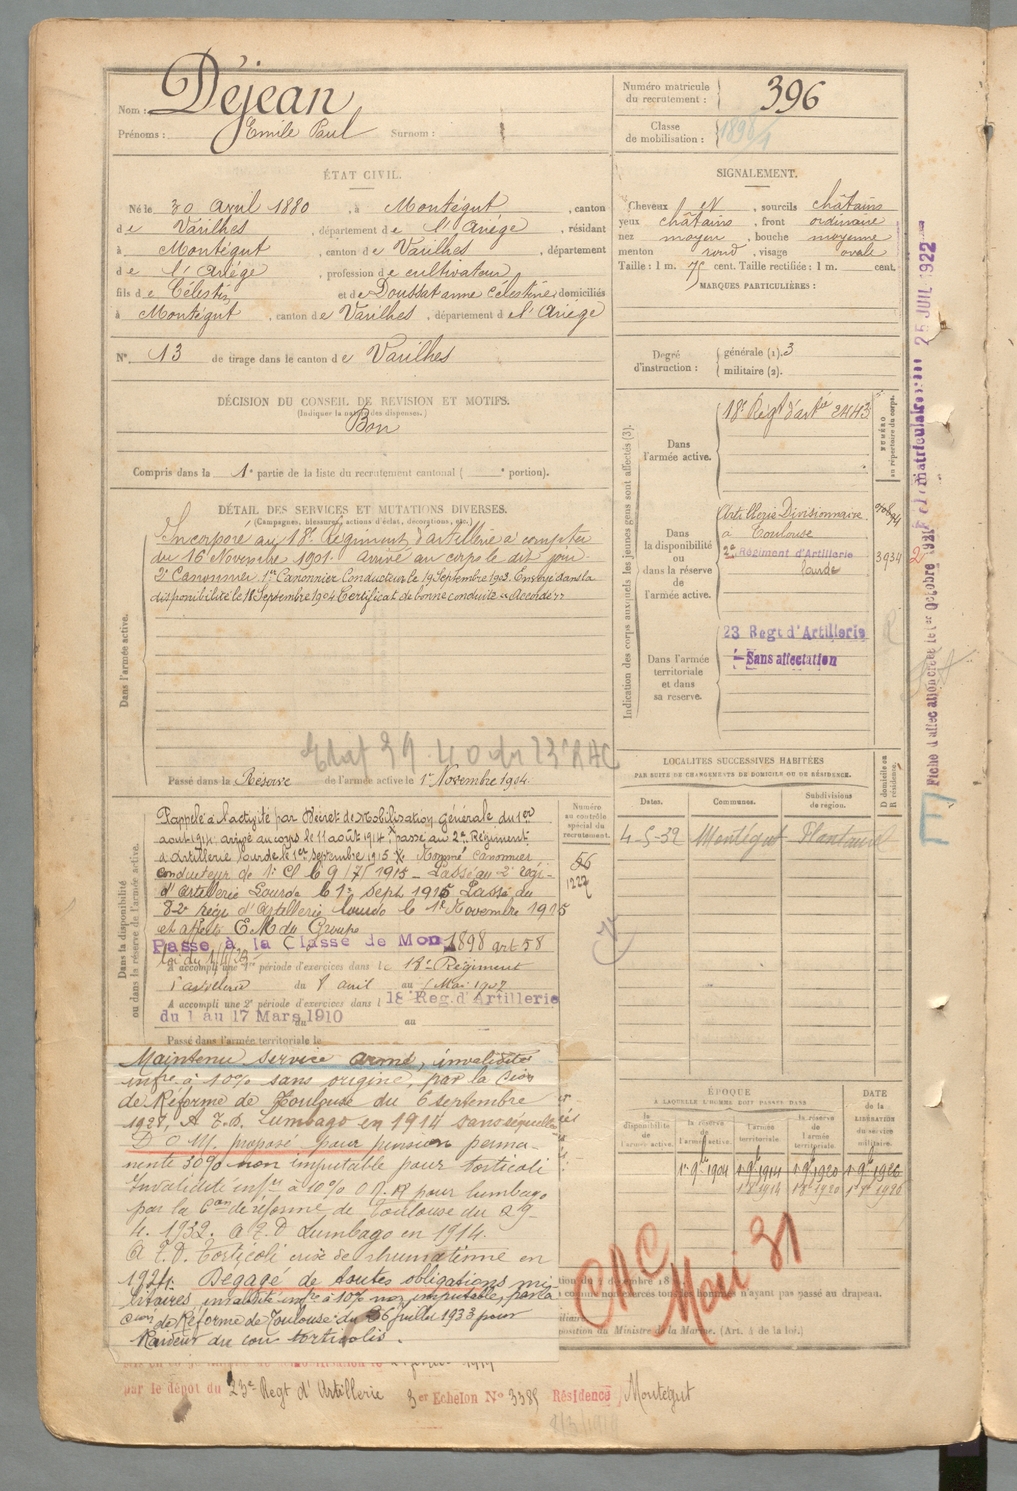 Nom : Déjean
Prénoms : Emile Paul Surnom :
Numéro matricule du recrutement : 396
Classe de mobilisation : 1898/1
ÉTAT CIVIL.
Né le 30 avril 1880, à Montégut, canton
de Varilhes, département de l'Ariège, résidant
à Montégut, canton de Varilhes, département
de l'Ariège, profession de cultivateur
fils de Célestin et de Doussat anne Célestine domiciliés
à Montégut, canton de Varilhes, département de l'Ariège
N° 13 de tirage dans le canton de Varilhes
SIGNALEMENT.
Cheveux N, sourcils châtains
yeux châtains, front ordinaire
nez moyen, bouche moyenne
menton rond, visage ovale
Taille : 1 m. 75 cent. Taille rectifiée : 1 m. cent.
MARQUES PARTICULIÈRES :
Degré d'instruction : générale (1). 3
militaire (2).
DÉCISION DU CONSEIL DE REVISION ET MOTIFS.
(Indiquer la nature des dispenses.)
Bon
Compris dans la 1e partie de la liste du recrutement cantonal ( e portion).
DÉTAIL DES SERVICES ET MUTATIONS DIVERSES.
(Campagnes, blessures, actions d'éclat, décorations, etc.)
Dans l'armée active.
Incorporé au 18e Régiment d'artillerie à compter
du 16 Novembre 1901. Arrivé au corps le dit jour
2e Canonnier 1er Canonnier Conducteur le 19 Septembre 1903. Envoyé dans la
disponibilité le 18 Septembre 1904 Certificat de bonne conduite "Accordé"
Etat 39-40 du 23e RAC
Passé dans la Réserve de l'armée active le 1er Novembre 1904.
Indication des corps auxquels les jeunes gens sont affectés (3).
NUMÉRO au répertoire du corps.
Dans l'armée active.
18e Régt d'artie 2443
Dans la disponibilité ou dans la réserve de l'armée active.
Artillerie Divisionnaire
à Toulouse
2e Régiment d'Artillerie
lourde
3934
2
Dans l'armée territoriale et dans sa réserve.
23 Regt d'Artillerie
Sans affectation
Fiche d'affectation créée le 1er Octobre 1921
matriculaire 25 JUIL 1922
LOCALITÉS SUCCESSIVES HABITÉES
PAR SUITE DE CHANGEMENTS DE DOMICILE OU DE RÉSIDENCE.
Dates. Communes. Subdivisions de région. D domicile ou R résidence.
4-5-32 Montégut
Dans la disponibilité ou dans la réserve de l'armée active.
Numéro au contrôle spécial du recrutement.
56
1222
Rappelé à l'activité par Décret de Mobilisation Générale du 1er
août 1914, arrivé au corps le 11 août 1914, Passé au 2e Régiment
d'Artillerie lourde le 1er septembre 1915 Nommé Canonnier
conducteur de 1e Cl le 9/7/1915 – Passé au 2e régi-
d'artillerie Lourde le 1er sept 1915 Passé au
82e Régt d'Artillerie lourde le 1er Novembre 1915
et affecté E.M. du Groupe
Passé à la Classe de Mon 1898 art 58
A accompli une 1re période d'exercices dans le 18e Régiment
d'artillerie du 8 avril au Mai 1907
A accompli une 2e période d'exercices dans l 18 Reg. d'Artillerie
du 1 au 17 Mars 1910 au
Passé dans l'armée territoriale le
Maintenu service armé, invalidité
infre à 10% sans origine, par la Cion
de Réforme de Toulouse du 6 septembre
1927, A.T.D. Lumbago en 1914 sans séquelles
D.O.M. proposé pour pension perma-
nente 30% non imputable pour torticoli
Invalidité infre à 10% pour lumbago
par la Con de réforme de Toulouse du 29-
4. 1932. A T. D Lumbago en 1914.
A T.D. Torticoli crise de rhumatisme en
1924. Dégagé de toutes obligations mi-
litaires, invalidité infre à 10% non imputable, par la
Cion de Réforme de Toulouse du 26 Juillet 1933 pour
Raideur du cou torticolis.
ÉPOQUE
A LAQUELLE L'HOMME DOIT PASSER DANS
la disponibilité de l'armée active. la réserve de l'armée active. l'armée territoriale. la réserve de l'armée territoriale.
DATE de la LIBÉRATION du service militaire.
1er 9bre 1904 1er 9bre 1914 1er 9bre 1920 1er 9bre 1926
CAC
Mai 31
hommes n'ayant pas passé au drapeau.
Ministre de la Marine. (Art. 4 de la loi.)
par le dépôt du 23e Regt d'Artillerie 3er Echelon N° 3385 Résidence Montégut